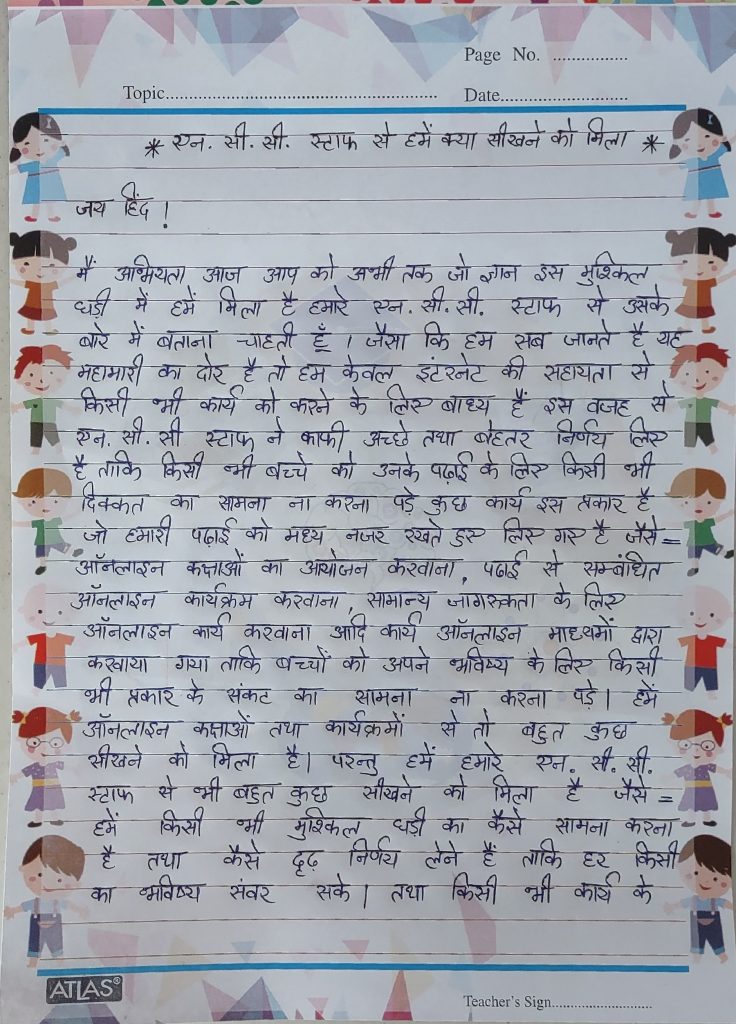 Page No. ................
Topic.......................................................... Date............................
* एन. सी. सी. स्टाफ से हमें क्या सीखने को मिला *
जय हिंद !
मैं अभियता आज आप को अभी तक जो ज्ञान इस मुश्किल
घड़ी में हमें मिला है हमारे एन. सी. सी. स्टाफ से उसके
बारे में बताना चाहती हूँ । जैसा कि हम सब जानते है यह
महामारी का दोर है तो हम केवल इंटरनेट की सहायता से
किसी भी कार्य को करने के लिए बाध्य हैं इस वजह से
एन. सी. सी स्टाफ ने काफी अच्छे तथा बेहतर निर्णय लिए
है ताकि किसी भी बच्चे को उनके पढाई के लिए किसी भी
दिक्कत का सामना ना करना पड़े कुछ कार्य इस प्रकार है
जो हमारी पढ़ाई को मध्य नजर रखते हुए लिए गए है जैसे =
ऑनलाइन कक्षाओं का आयोजन करवाना, पढाई से सम्बंधित
ऑनलाइन कार्यक्रम करवाना, सामान्य जागरुकता के लिए
ऑनलाइन कार्य करवाना आदि कार्य ऑनलाइन माध्यमों द्वारा
करवाया गया ताकि बच्चों को अपने भविष्य के लिए किसी
भी प्रकार के संकट का सामना ना करना पड़े। हमें
ऑनलाइन कक्षाओं तथा कार्यक्रमों से तो बहुत कुछ
सीखने को मिला है। परन्तु हमें हमारे एन. सी. सी.
स्टाफ से भी बहुत कुछ सीखने को मिला है जैसे =
हमें किसी भी मुश्किल घड़ी का कैसे सामना करना
है तथा कैसे दृढ़ निर्णय लेने हैं ताकि हर किसी
का भविष्य संवर सके। तथा किसी भी कार्य के
ATLAS®
Teacher's Sign.........................